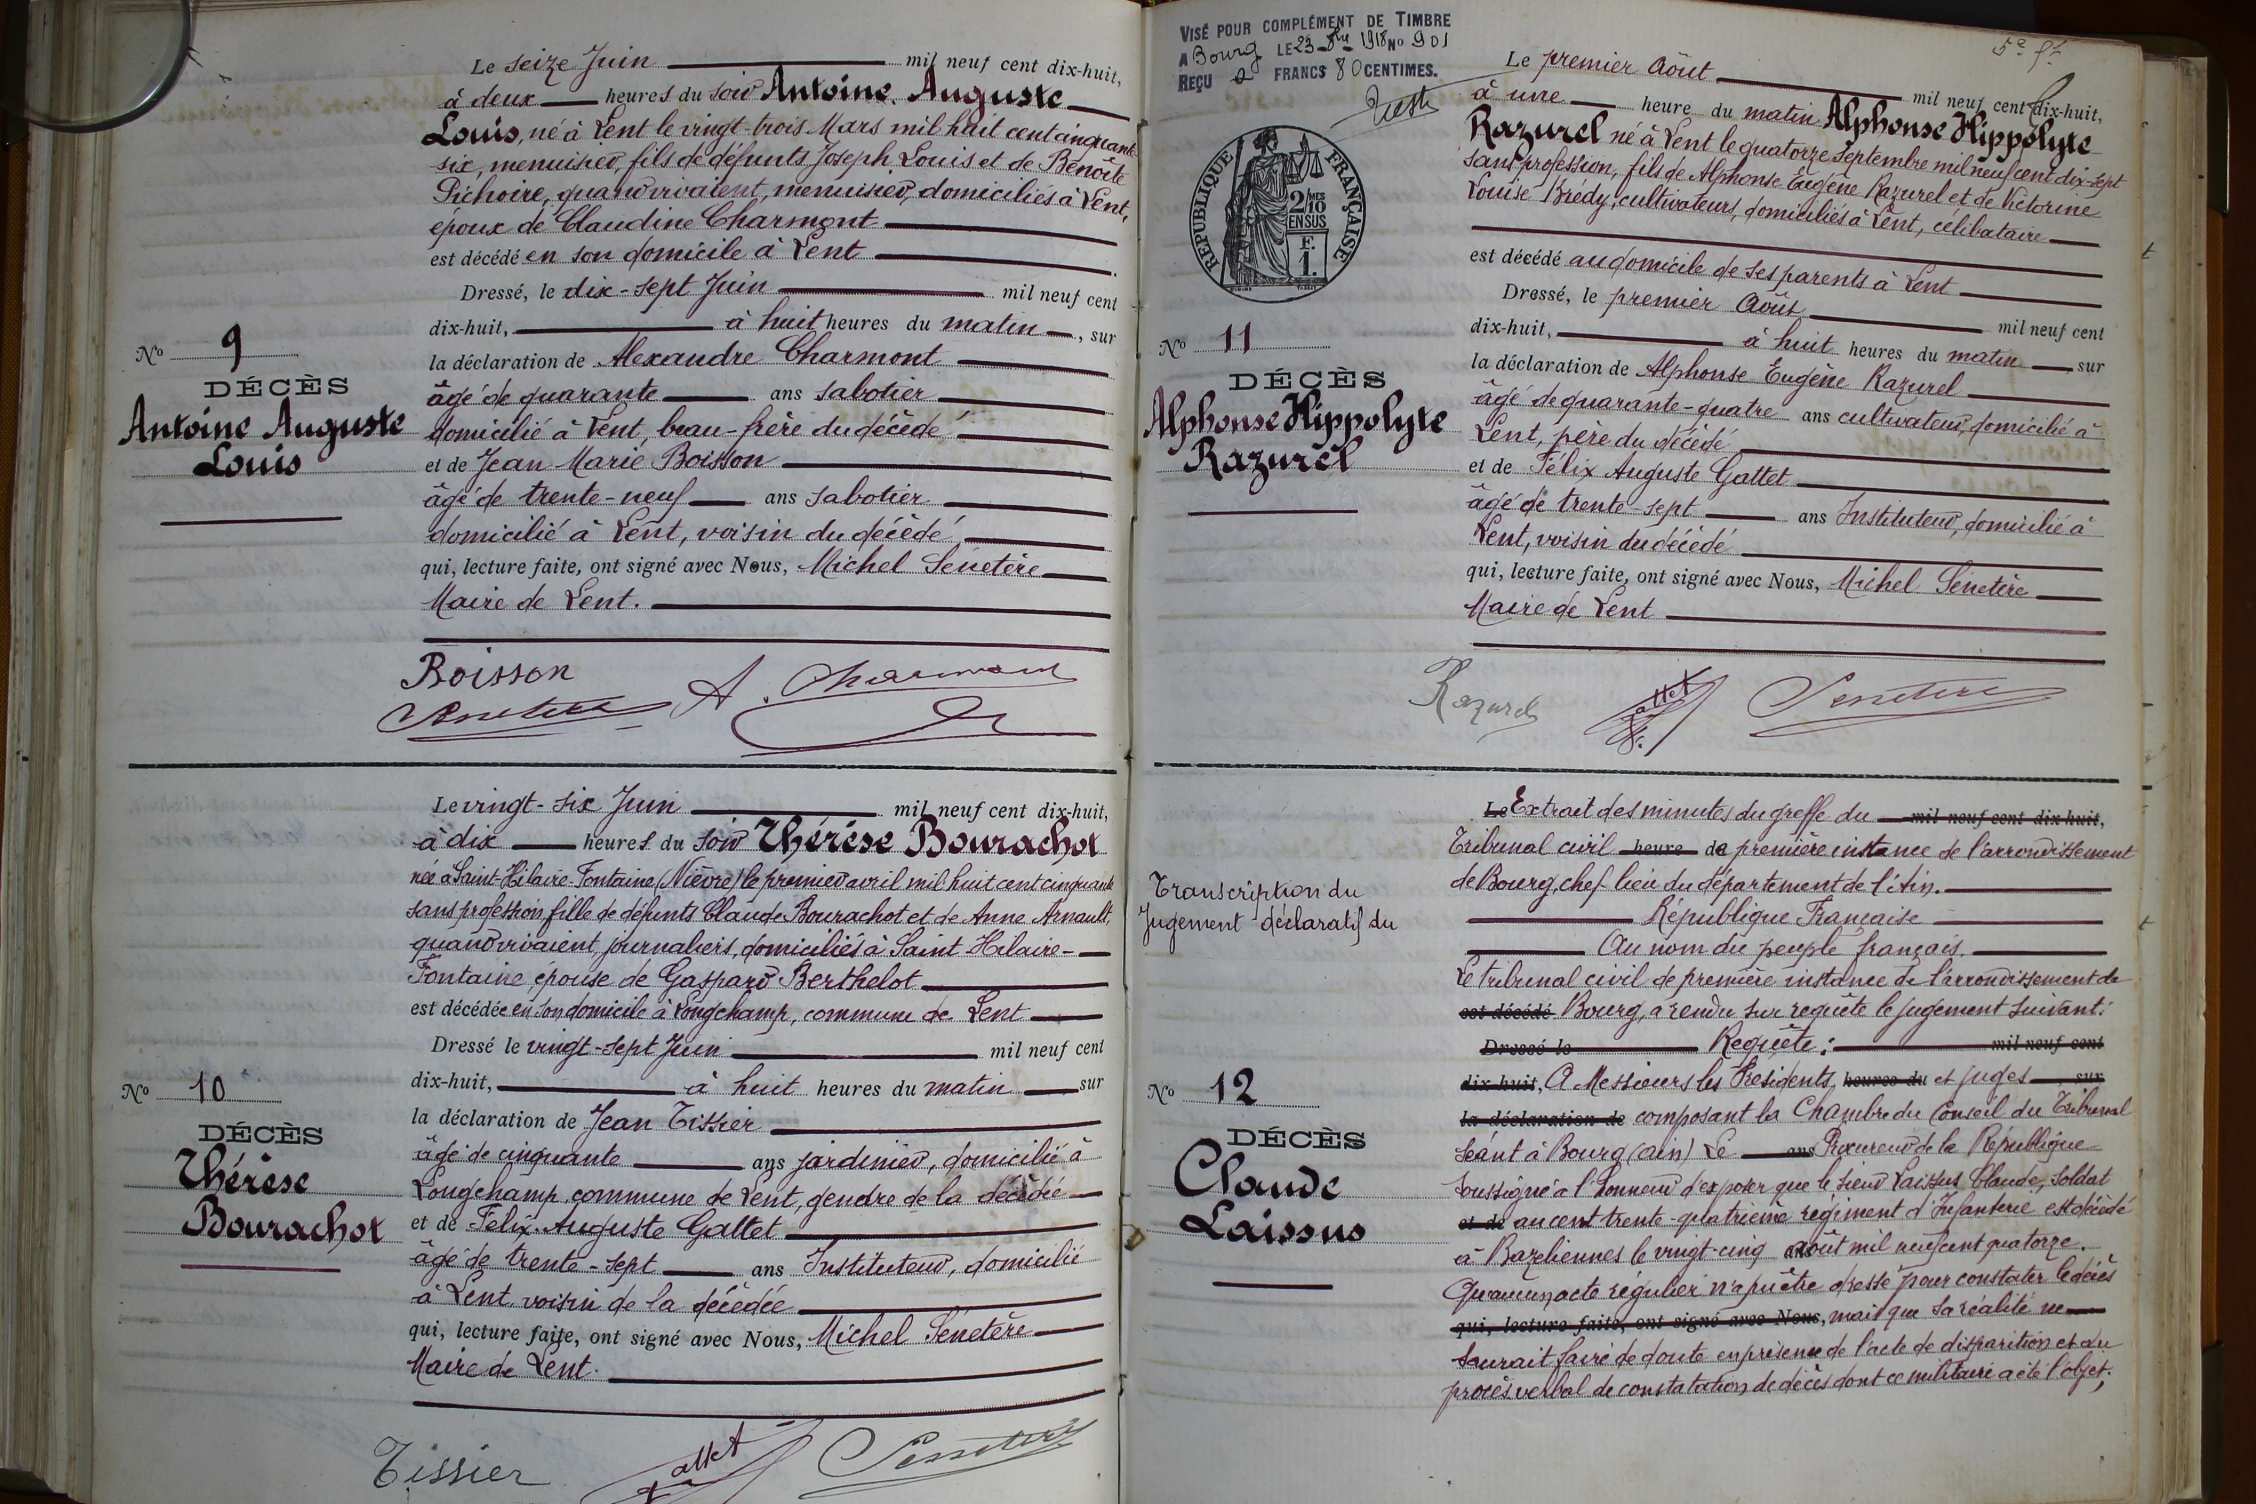 Le seize Juin mil neuf cent dix-huit,
à deux heures du soir Antoine Auguste
Louis, né à Lent le vingt-trois Mars mil huit cent cinquante
six, menuisier, fils de défunts Joseph Louis et de Benoîte
Pichoire, quand vivaient, menuisier, domiciliés à Lent,
époux de Claudine Charmont
est décédé en son domicile à Lent
Dressé, le dix-sept Juin mil neuf cent
dix-huit, à huit heures du matin, sur
la déclaration de Alexandre Charmont
âgé de quarante ans sabotier
domicilié à Lent, beau-frère du décédé
et de Jean Marie Boisson
âgé de trente-neuf ans sabotier
domicilié à Lent, voisin du décédé
qui, lecture faite, ont signé avec Nous, Michel Sénetère
Maire de Lent.
No 9
DÉCÈS
Antoine Auguste
Louis
Boisson
Senetère A. Charmont
Le vingt-six Juin mil neuf cent dix-huit,
à dix heures du soir Thérèse Bourachot
née à Saint-Hilaire-Fontaine (Nièvre) le premier avril mil huit cent cinquante
sans profession fille de défunts Claude Bourachot et de Anne Arnault,
quand vivaient, journaliers, domiciliés à Saint Hilaire-
Fontaine, épouse de Gaspard Berthelot
est décédée en son domicile à Longchamp, commune de Lent
Dressé le vingt-sept Juin mil neuf cent
dix-huit, à huit heures du matin sur
la déclaration de Jean Tissier
âgé de cinquante ans jardinier, domicilié à
Longchamp commune de Lent, gendre de la décédée
et de Félix Auguste Gattet
âgé de trente-sept ans Instituteur, domicilié
à Lent voisin de la décédée
qui, lecture faite, ont signé avec Nous, Michel Sénetère
Maire de Lent.
No 10
DÉCÈS
Thérèse
Bourachot
Tissier Gattet Senetère
VISÉ POUR COMPLÉMENT DE TIMBRE
A Bourg LE 23 1918 No 901
REÇU FRANCS 80 CENTIMES.
RÉPUBLIQUE FRANÇAISE
2/10 MES
EN SUS
F.
1.
Le premier Août mil neuf cent dix-huit,
à une heure du matin Alphonse Hippolyte
Razurel né à Lent le quatorze Septembre mil neuf cent dix-sept
sans profession, fils de Alphonse Eugène Razurel et de Victorine
Louise Brédy, cultivateurs, domiciliés à Lent, célibataire
est décédé au domicile de ses parents à Lent
Dressé, le premier Août mil neuf cent
dix-huit, à huit heures du matin sur
la déclaration de Alphonse Eugène Razurel
âgé de quarante-quatre ans cultivateur, domicilié à
Lent, père du décédé
et de Félix Auguste Gattet
âgé de trente-sept ans Instituteur, domicilié à
Lent, voisin du décédé
qui, lecture faite, ont signé avec Nous, Michel Sénetère
Maire de Lent
No 11
DÉCÈS
Alphonse Hippolyte
Razurel
Razurel Gattet Senetère
Le Extrait des minutes du greffe du mil neuf cent dix huit,
Tribunal civil heure de première instance de l'arrondissement
de Bourg, chef-lieu du département de l'Ain.
République Française
Au nom du peuple français.
Le tribunal civil de première instance de l'arrondissement de
est décédé Bourg, a rendu sur requête le jugement suivant:
Dressé le Requête: mil neuf cent
dix huit, A Messieurs les Présidents, heures du et juges sur
la déclaration de composant la Chambre du Conseil du Tribunal
séant à Bourg (ain) Le ans Procureur de la République
soussigné a l'honneur d'exposer que le sieur Laissus Claude, soldat
et de au cent trente-quatrième régiment d'Infanterie est décédé
à Bazeliennes le vingt-cinq ans août mil neuf cent quatorze.
Qu'aucun acte régulier n'a pu être dressé pour constater le décès
qui, lecture faite, ont signé avec Nous, mais que sa réalité ne
saurait faire de doute en présence de l'acte de disparition et du
procès verbal de constatation de décès dont ce militaire a été l'objet;
Transcription du
Jugement déclaratif du
No 12
DÉCÈS
Claude
Laissus